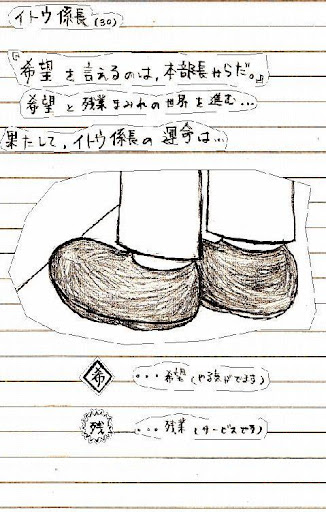 イトウ係長(30)
『希望を言えるのは、本部長からだ。』
希望と残業まみれの世界を進む…
果たして、イトウ係長の運命は…
希 …希望(やる気がでます)
残 …残業(サービスです)